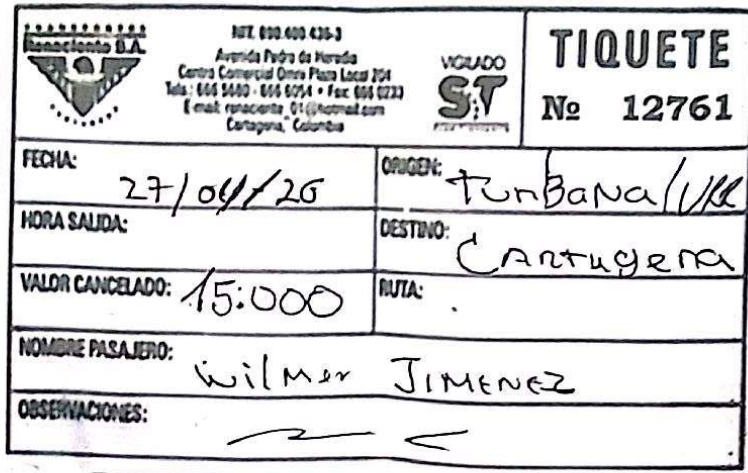 Renaciente S.A.
NIT. 890.400.435-3
Avenida Pedro de Heredia
Centro Comercial Omni Plaza Local 204
Tels.: 666 5680 - 666 6054 • Fax: 666 0233
E-mail: renaciente_01@hotmail.com
Cartagena, Colombia
VIGILADO
ST
TIQUETE
No 12761
FECHA: 27/04/26
ORIGEN: TurBaNa/
HORA SALIDA:
DESTINO: CARTagena
VALOR CANCELADO: 15:000
RUTA:
NOMBRE PASAJERO: wilmer JIMENEZ
OBSERVACIONES: